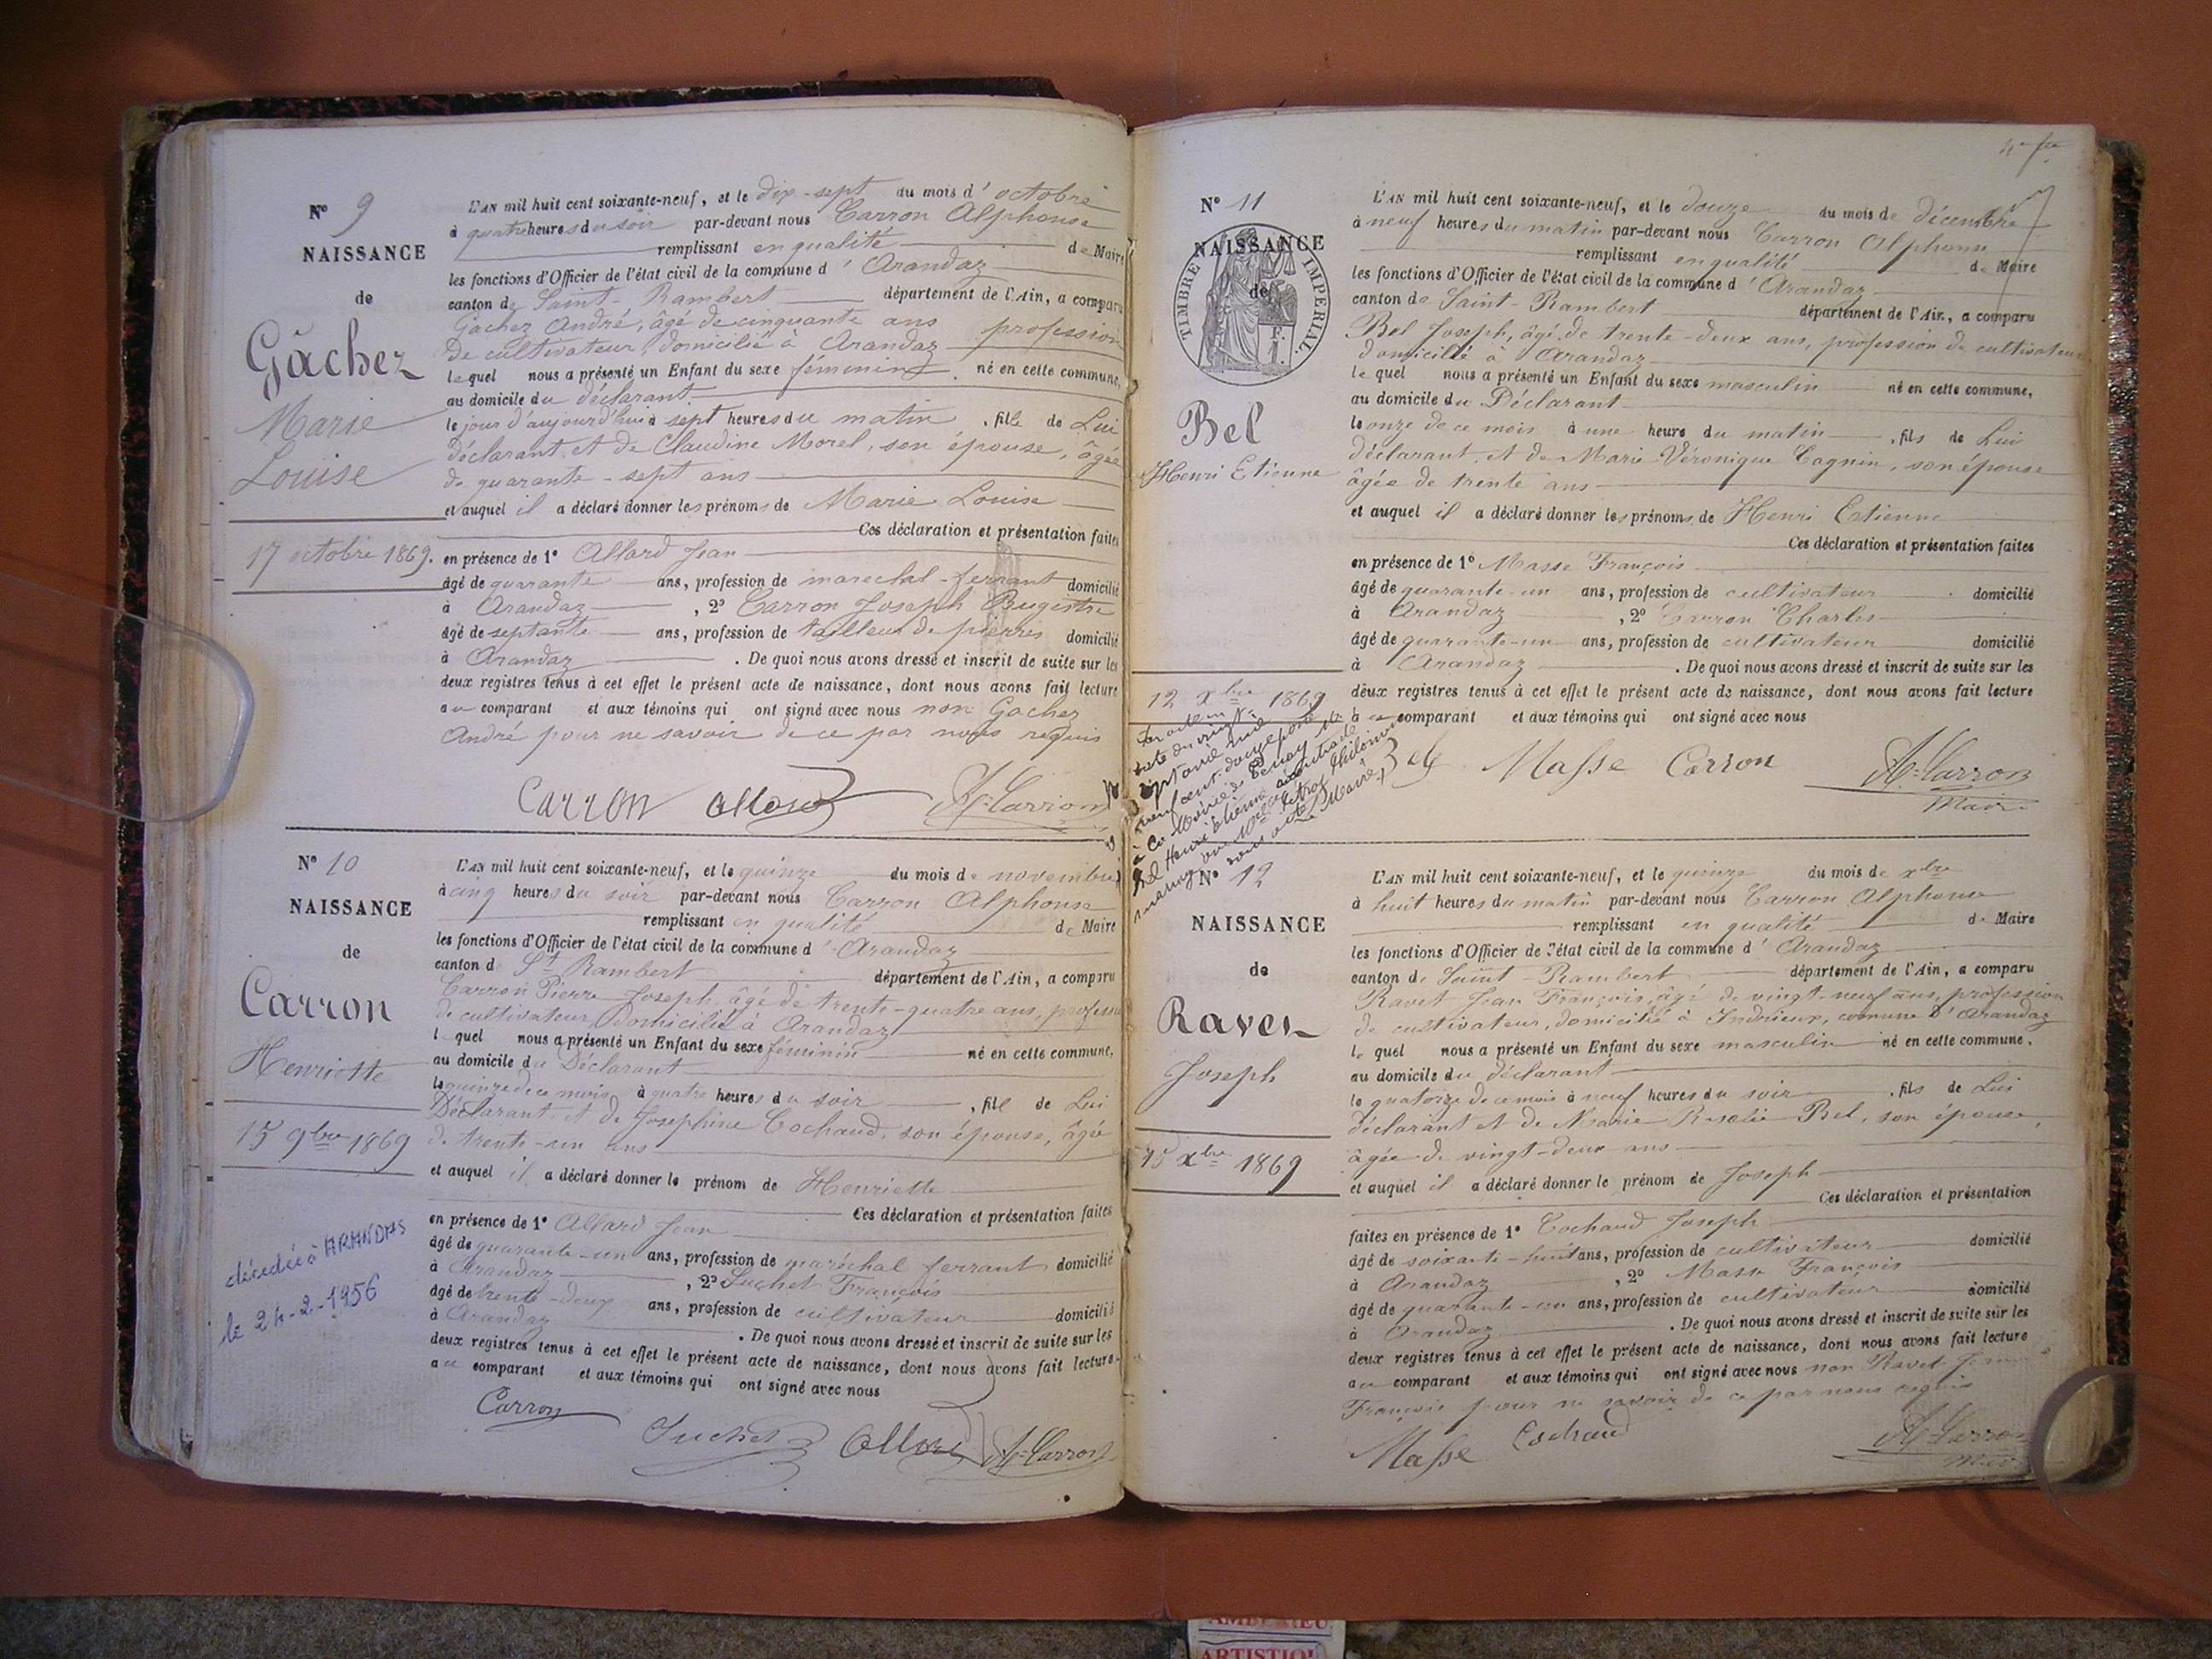 N° 9
NAISSANCE
de
Gâchez
Marie
Louise
17 octobre 1869.
L'AN mil huit cent soixante-neuf, et le dix-sept du mois d'octobre
à quatre heures du soir par-devant nous Carron Alphonse
remplissant en qualité de Maire
les fonctions d'Officier de l'état civil de la commune d'Arandaz
canton de Saint-Rambert département de l'Ain, a comparu
Gâchez André, âgé de cinquante ans profession
de cultivateur, domicilié à Arandaz
lequel nous a présenté un Enfant du sexe féminin né en cette commune,
au domicile du déclarant.
le jour d'aujourd'hui à sept heures du matin, fille de Lui
Déclarant et de Claudine Morel, son épouse, âgée
de quarante-sept ans
et auquel il a déclaré donner les prénoms de Marie Louise
Ces déclaration et présentation faites
en présence de 1° Allard Jean
âgé de quarante ans, profession de marechal-ferrant domicilié
à Arandaz, 2° Carron Joseph
âgé de septante ans, profession de tailleur de pierres domicilié
à Arandaz. De quoi nous avons dressé et inscrit de suite sur les
deux registres tenus à cet effet le présent acte de naissance, dont nous avons fait lecture
au comparant et aux témoins qui ont signé avec nous non Gachez
André pour ne savoir de ce par nous requis
Carron Allard A. Carron
N° 10
NAISSANCE
de
Carron
Henriette
15 9bre 1869
décédée à ARANDAS
le 24-2-1956
L'AN mil huit cent soixante-neuf, et le quinze du mois de novembre
à cinq heures du soir par-devant nous Carron Alphonse
remplissant en qualité de Maire
les fonctions d'Officier de l'état civil de la commune d'Arandaz
canton de St Rambert département de l'Ain, a comparu
Carron Pierre Joseph, âgé de trente-quatre ans, profession
de cultivateur, Domicilié à Arandaz
lequel nous a présenté un Enfant du sexe féminin né en cette commune,
au domicile du Déclarant
le quinze de ce mois à quatre heures du soir, fille de Lui
Déclarant et de Josephine Cochaud, son épouse, âgée
de trente-un ans
et auquel il a déclaré donner le prénom de Henriette
Ces déclaration et présentation faites
en présence de 1° Allard Jean
âgé de quarante-un ans, profession de maréchal ferrant domicilié
à Arandaz, 2° Suchet François
âgé de trente-deux ans, profession de cultivateur domicilié
à Arandaz. De quoi nous avons dressé et inscrit de suite sur les
deux registres tenus à cet effet le présent acte de naissance, dont nous avons fait lecture
au comparant et aux témoins qui ont signé avec nous
Carron Suchet Allard A. Carron
N° 11
NAISSANCE
de
TIMBRE IMPERIAL.
Bel
Henri Etienne
12 xbre 1869
L'AN mil huit cent soixante-neuf, et le douze du mois de décembre
à neuf heures du matin par-devant nous Carron Alphonse
remplissant en qualité de Maire
les fonctions d'Officier de l'état civil de la commune d'Arandaz
canton de Saint-Rambert département de l'Ain, a comparu
Bel Joseph, âgé de trente-deux ans, profession de cultivateur
domicilié à Arandaz
lequel nous a présenté un Enfant du sexe masculin né en cette commune,
au domicile du Déclarant
le onze de ce mois à une heure du matin, fils de Lui
déclarant et de Marie Véronique Cagnin, son épouse
âgée de trente ans
et auquel il a déclaré donner les prénoms de Henri Etienne
Ces déclaration et présentation faites
en présence de 1° Masse François
âgé de quarante-un ans, profession de cultivateur domicilié
à Arandaz, 2° Carron Charles
âgé de quarante-un ans, profession de cultivateur domicilié
à Arandaz. De quoi nous avons dressé et inscrit de suite sur les
deux registres tenus à cet effet le présent acte de naissance, dont nous avons fait lecture
au comparant et aux témoins qui ont signé avec nous
Bel Masse Carron A. Carron
Maire
N° 12
NAISSANCE
de
Ravet
Joseph
15 xbre 1869
L'AN mil huit cent soixante-neuf, et le quinze du mois de xbre
à huit heures du matin par-devant nous Carron Alphonse
remplissant en qualité de Maire
les fonctions d'Officier de l'état civil de la commune d'Arandaz
canton de Saint-Rambert département de l'Ain, a comparu
Ravet Jean François, âgé de vingt-neuf ans, profession
de cultivateur, domicilié à Indrieux, comune d'Arandaz
lequel nous a présenté un Enfant du sexe masculin né en cette commune.
au domicile du déclarant
le quatorze de ce mois à neuf heures du soir, fils de Lui
déclarant et de Marie Rosalie Bel, son épouse,
âgée de vingt-deux ans
et auquel il a déclaré donner le prénom de Joseph
Ces déclaration et présentation
faites en présence de 1° Cochaud Joseph
âgé de soixante-huit ans, profession de cultivateur domicilié
à Arandaz, 2° Masse François
âgé de quarante-un ans, profession de cultivateur domicilié
à Arandaz. De quoi nous avons dressé et inscrit de suite sur les
deux registres tenus à cet effet le présent acte de naissance, dont nous avons fait lecture
au comparant et aux témoins qui ont signé avec nous non Ravet Jean
François pour ne savoir de ce par nous requis
Masse Cochaud A. Carron